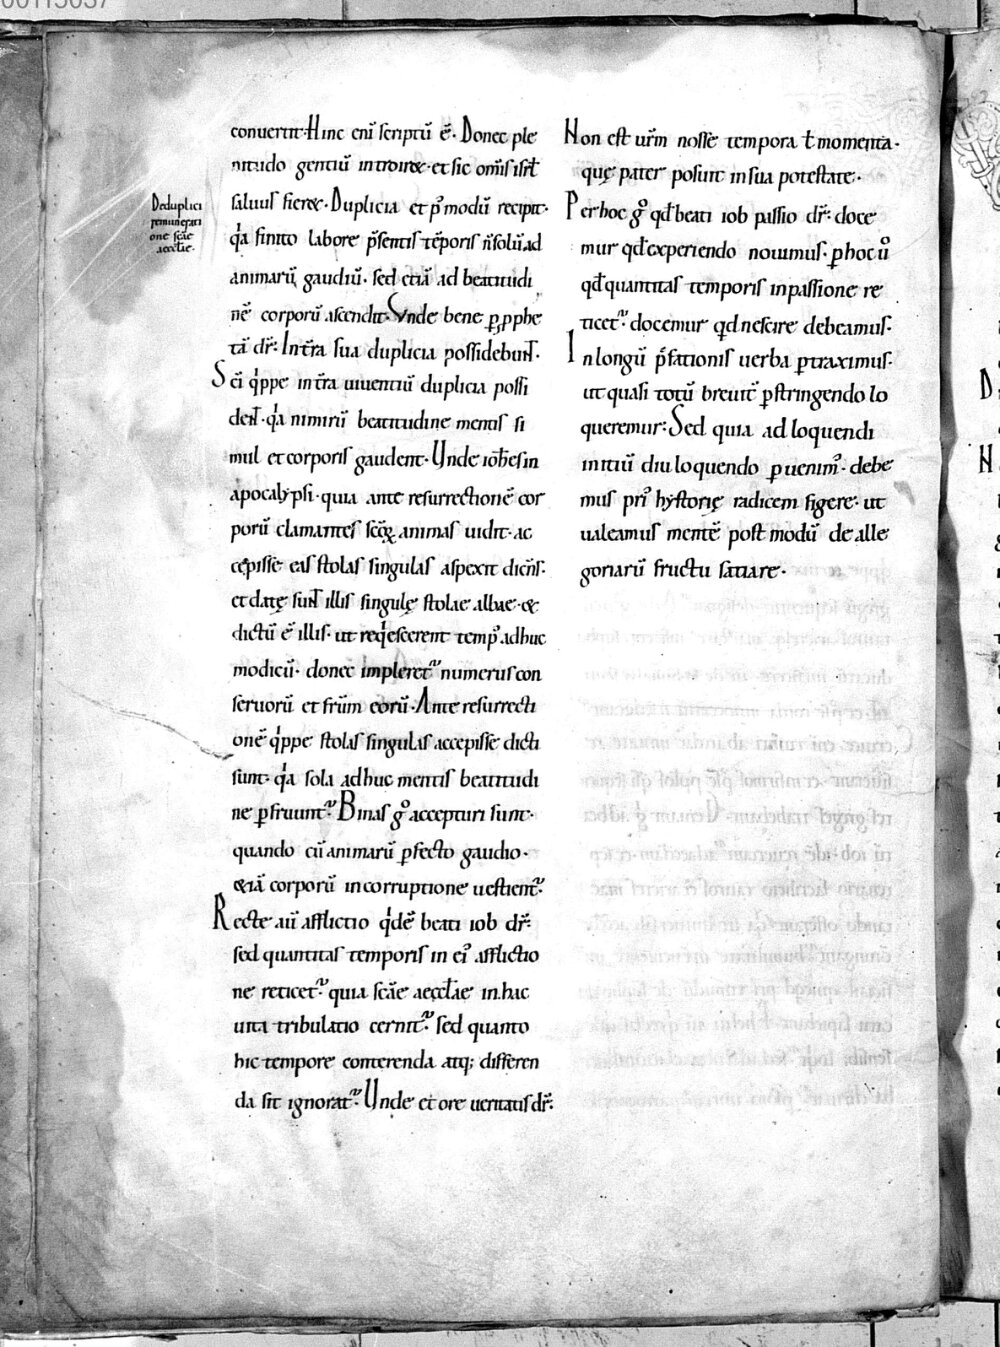 conuertit· Hinc eni̅ scriptu̅ e̅· Donec ple
nitudo gentiu̅ introiret· et sic om̅is isrl̅
saluus fieret· Duplicia et p̱ modu̅ recipit·
qͥa finito labore p̅sentis te̅poris n̅ solu̅ ad
animaru̅ gaudiu̅· sed etia̅ ad beatitudi
ne̅ corporu̅ ascendit· Vnde bene p̱ pphe
ta̅ dr̅: In tr̅a sua duplicia possidebunt̅·
Sc̅i qͥppe in tr̅a uiuentiu̅ duplicia possi
dent̅· qͥa nimiru̅ beatitudine mentis si
mul et corporis gaudent· Vnde ioh̅es in
apocalẏpsi· quia ante resurrectione̅ cor
poru̅ clamantes sc̅oꝝ animas uidit· ac
cepisse eas stolas singulas aspexit dicn̅s·
et datę sunt̅ illis singulę stolae albae· &
dictu̅ e̅ illis· ut reqͥescerent temp᾽ adhuc
modicu̅· donec impleret᷑ numerus con
seruoru̅ et fr̅um eoru̅· Ante resurrecti
one̅ qͥppe stolas singulas accepisse dicti
sunt· qͥa sola adhuc mentis beatitudi
ne p̱fruunt᷑· Binas gͦ accepturi sunt·
quando cu̅ animaru̅ p̱fecto gaudio·
&ia̅ corporu̅ incorruptione uestient᷑·
Recte au̅ afflictio qͥde̅ beati iob dr̅:
sed quantitas temporis in ei᾽ afflictio
ne reticet᷑· quia sc̅ae aeccl̅ae in hac
uita tribulatio cernit᷑· sed quanto
hic tempore conterenda atq; differen
da sit ignorat᷑· Vnde et ore ueritatis dr̅:
De duplici
remunerati
one sc̅ae
aeccl̅ie·
Non est ur̅m nosse tempora ł momenta·
quę pater posuit in sua potestate·
Per hoc gͦ qd̅ beati iob passio dr̅: doce
mur qd̅ experiendo nouimus· p̱ hoc u̅ͦ
qd̅ quantitas temporis in passione re
ticet᷑· docemur qd̅ nescire debeamus·
In longu̅ p̅fationis uerba p̱traximus·
ut quasi totu̅ breuit̅ p̱stringendo lo
queremur: Sed quia ad loquendi
initiu̅ diu loquendo p̱uenim᾽· debe
mus pri᾽ hẏstorię radicem figere· ut
ualeamus mente̅ post modu̅ de alle
goriaru̅ fructu satiare·